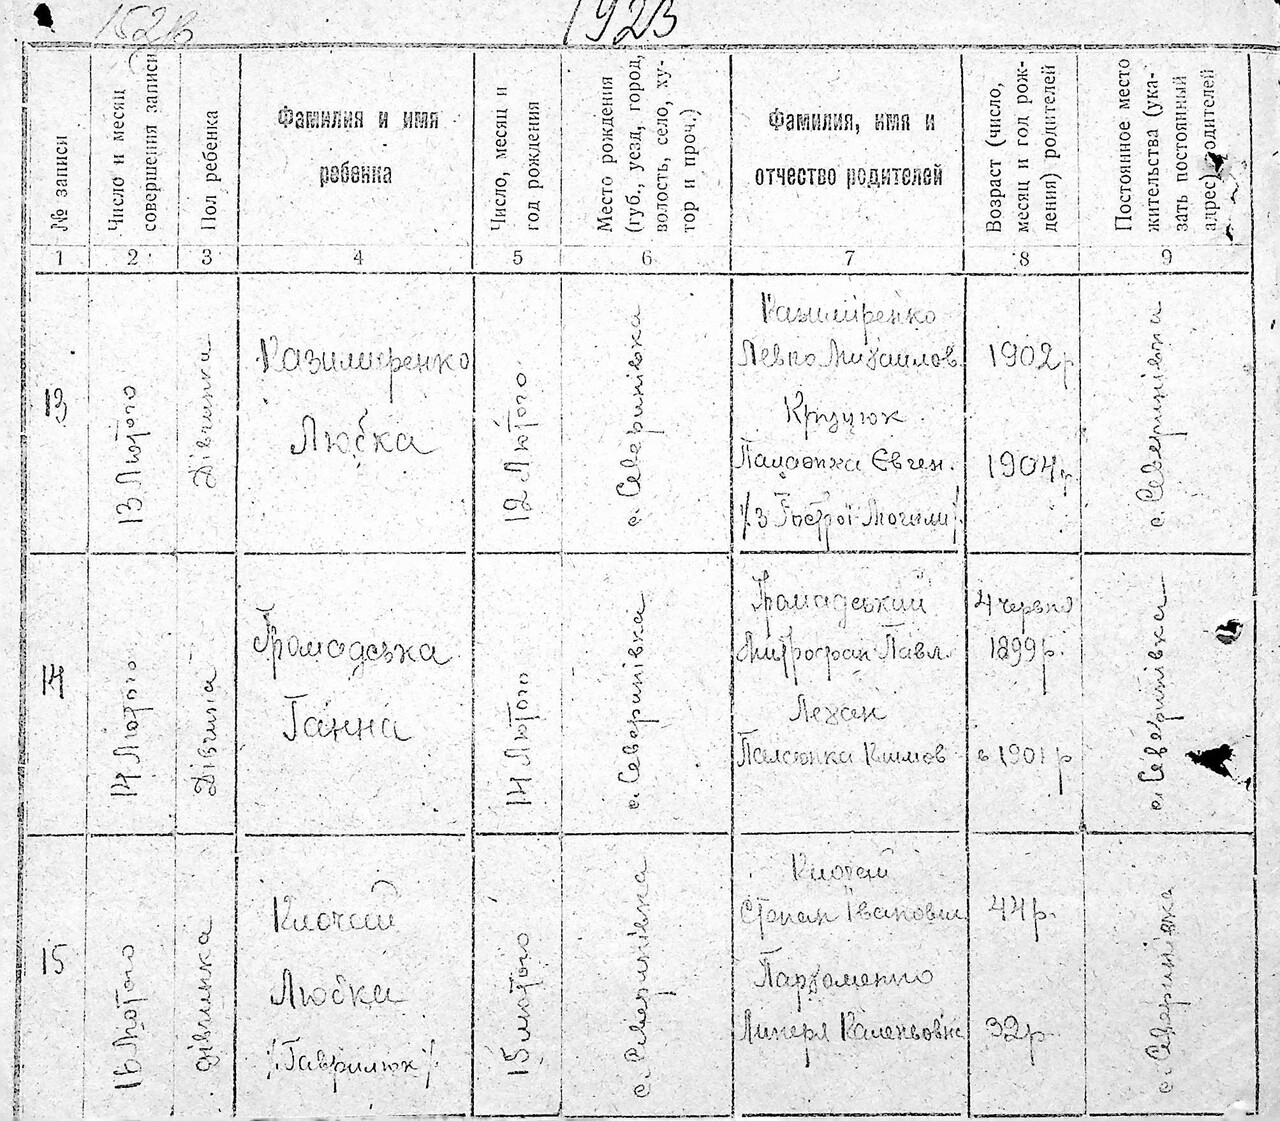 1923
№ записи
Число и месяц
совершения записи
Пол ребенка
Фамилия и имя
ребенка
Число, месяц и
год рождения
Место рождения
(губ., уезд, город,
волость, село, ху-
тор и проч.)
Фамилия, имя и
отчество родителей
Возраст (число,
месяц и год рож-
дения) родителей
Постоянное место
жительства (ука-
зать постоянный
адрес) родителей
1
2
3
4
5
6
7
8
9
13
13 Лютого
Дівчинка
Казимиренко
Любка
12 Лютого
с. Северинівка
Казиміренко
Левко Михайлов
1902 р
Євген.
1904 р
/з Гострої-Могили/
с. Северинівка
14
14 Лютого
Дівчина
Громадська
Ганна
14 Лютого
с. Северинівка
Громадський
Митрофан Павл.
Лехан
Климов
4 червня
1899 р.
в 1901 р
с. Северинівка
15
16 Лютого
дівчинка
Клочай
Любка
/Гаврилюк/
15 лютого
с. Северинівка
Степан Іванович
44 р.
Пархоменко
32 р
с. Северинівка